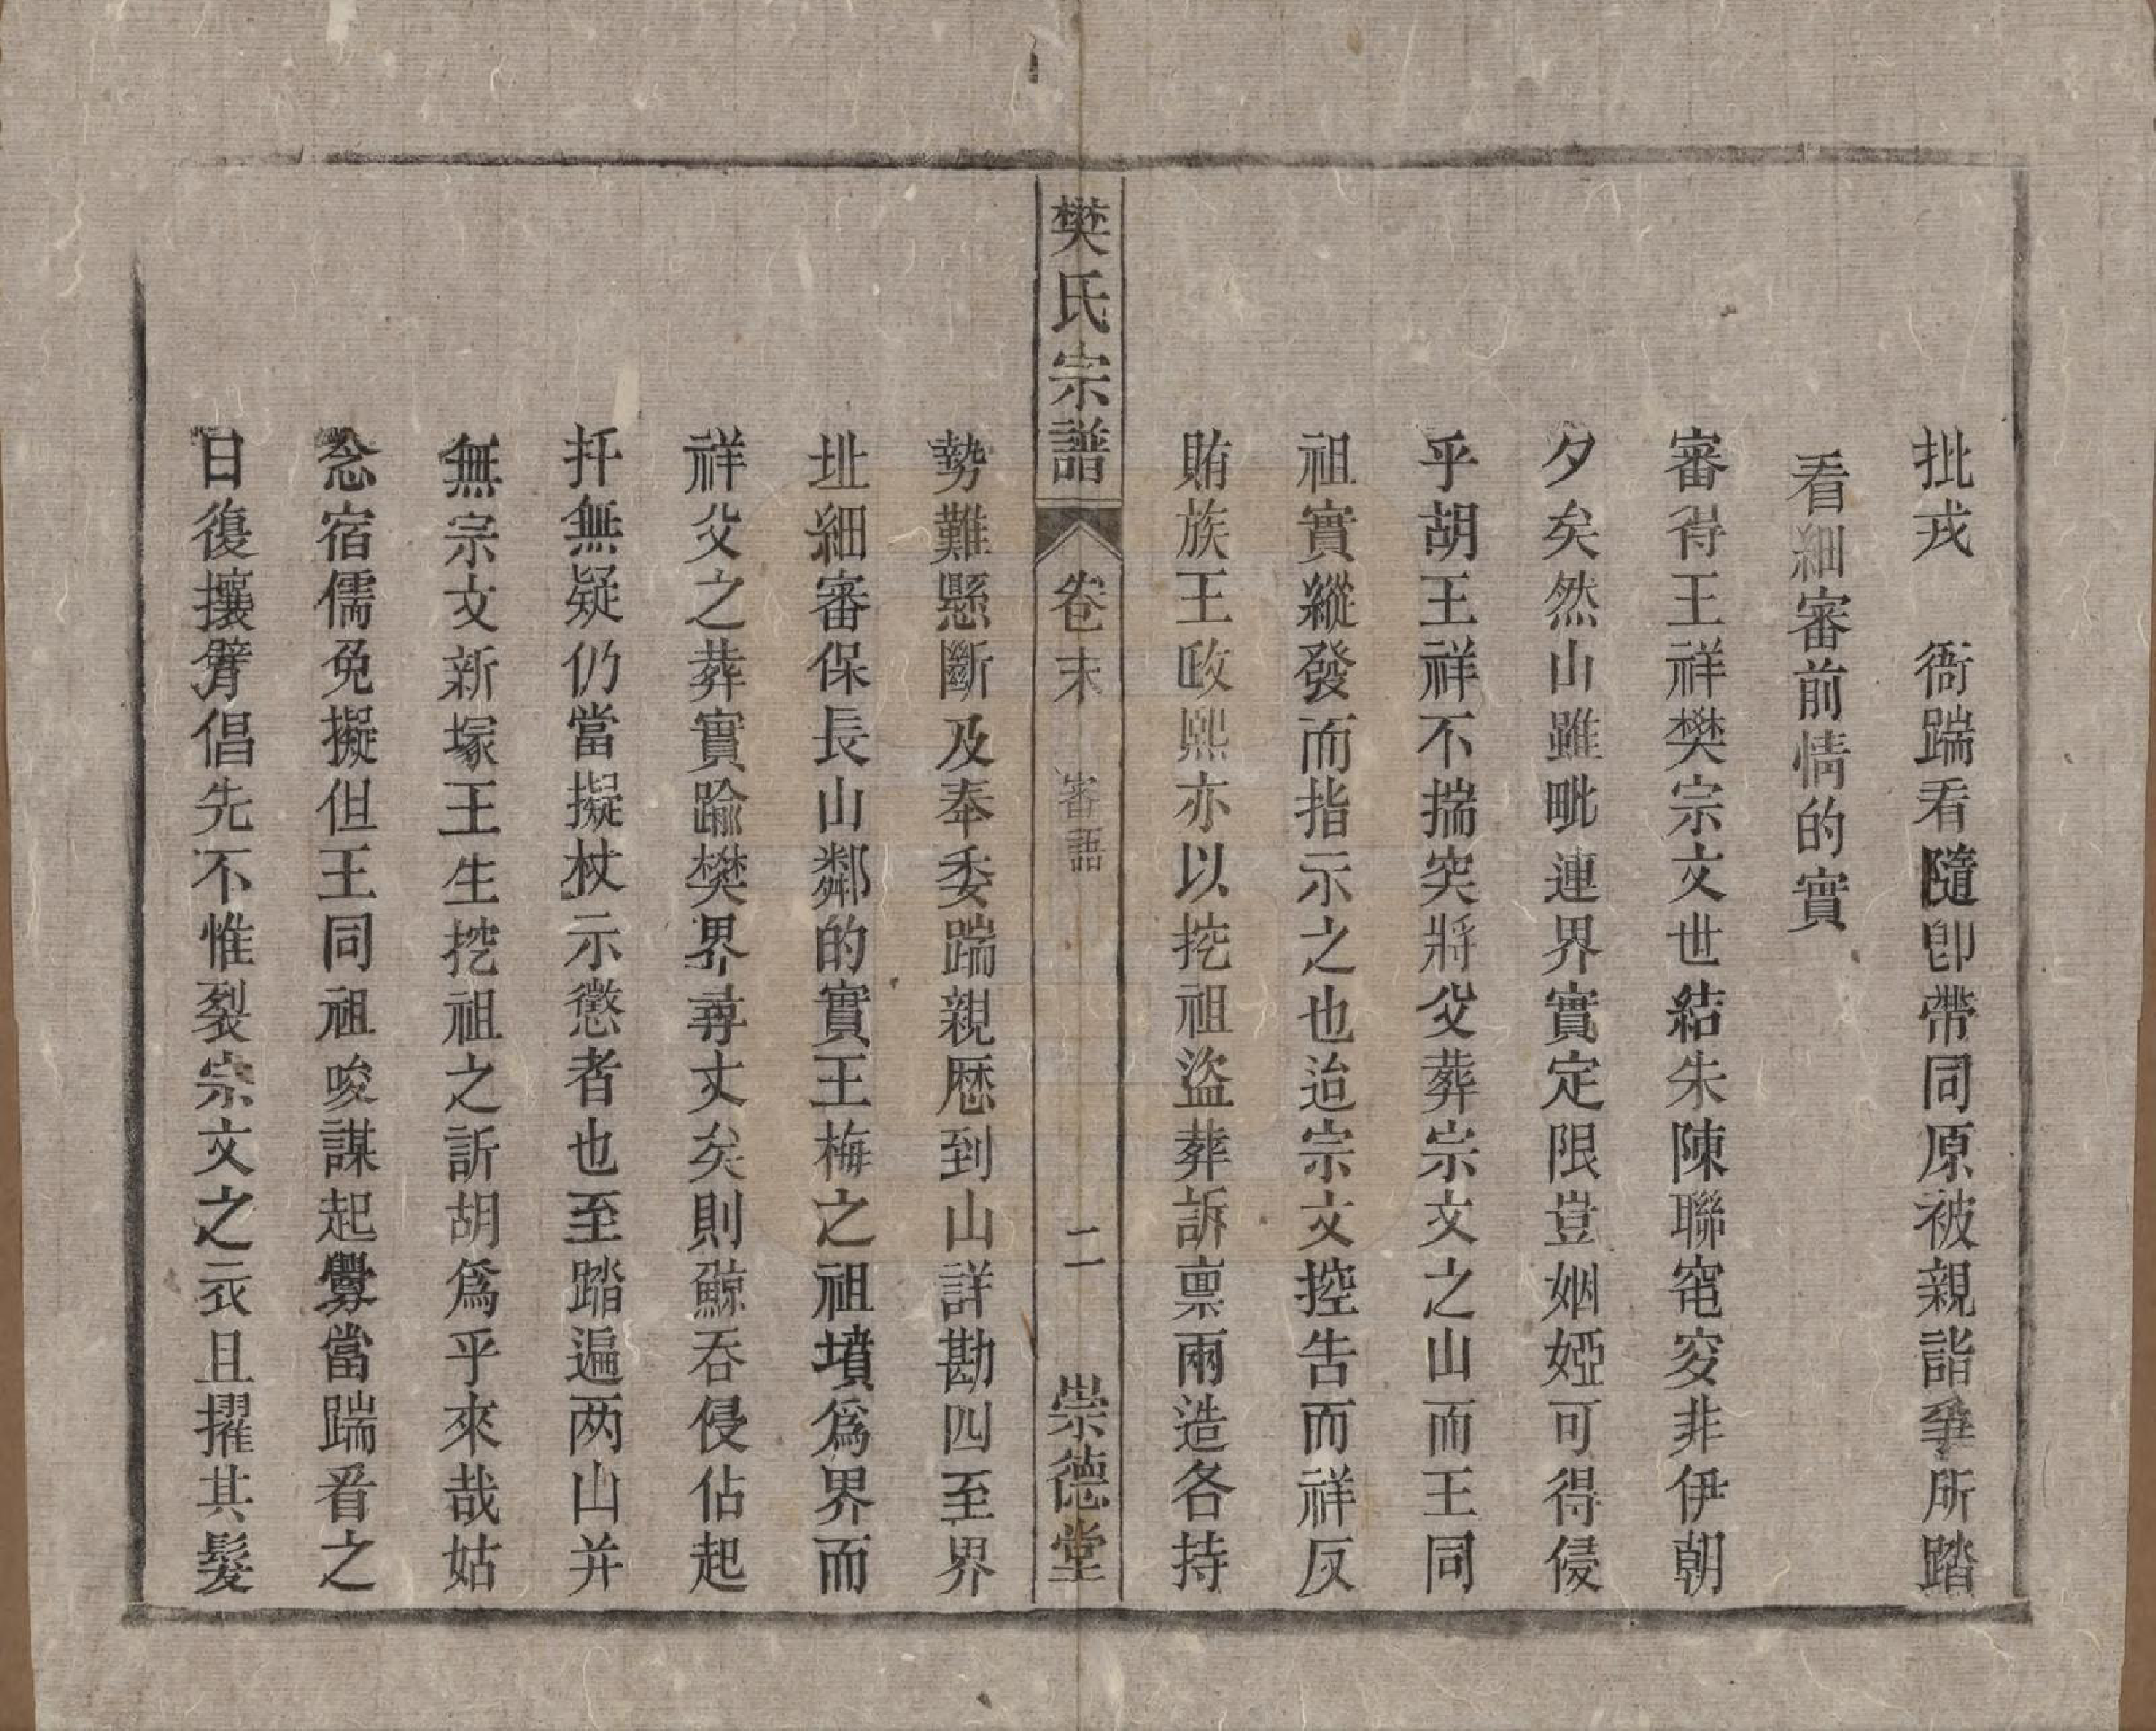 批戎　衙踹看隨卽帶同原被親詣爭所踏
看細審前情的實
審得王祥樊宗文世結朱陳聯窀穸非伊朝
夕矣然山雖毗連界實定限豈姻婭可得侵
乎胡王祥不揣突將父葬宗文之山而王同
祖實縱發而指示之也迨宗文控告而祥反
賄族王政熙亦以挖祖盜葬訴禀兩造各持
樊氏宗譜　卷末　審語　二　崇德堂
勢難懸斷及奉委踹親歷到山詳勘四至界
址細審保長山鄰的實王梅之祖墳爲界而
祥父之葬實踰樊界尋丈矣則鯨吞侵佔起
扦無疑仍當擬杖示懲者也至踏遍两山并
無宗文新塚王生挖祖之訴胡爲乎來哉姑
念宿儒免擬但王同祖唆謀起釁當踹看之
日復攘臂倡先不惟裂宗文之衣且擢其髮